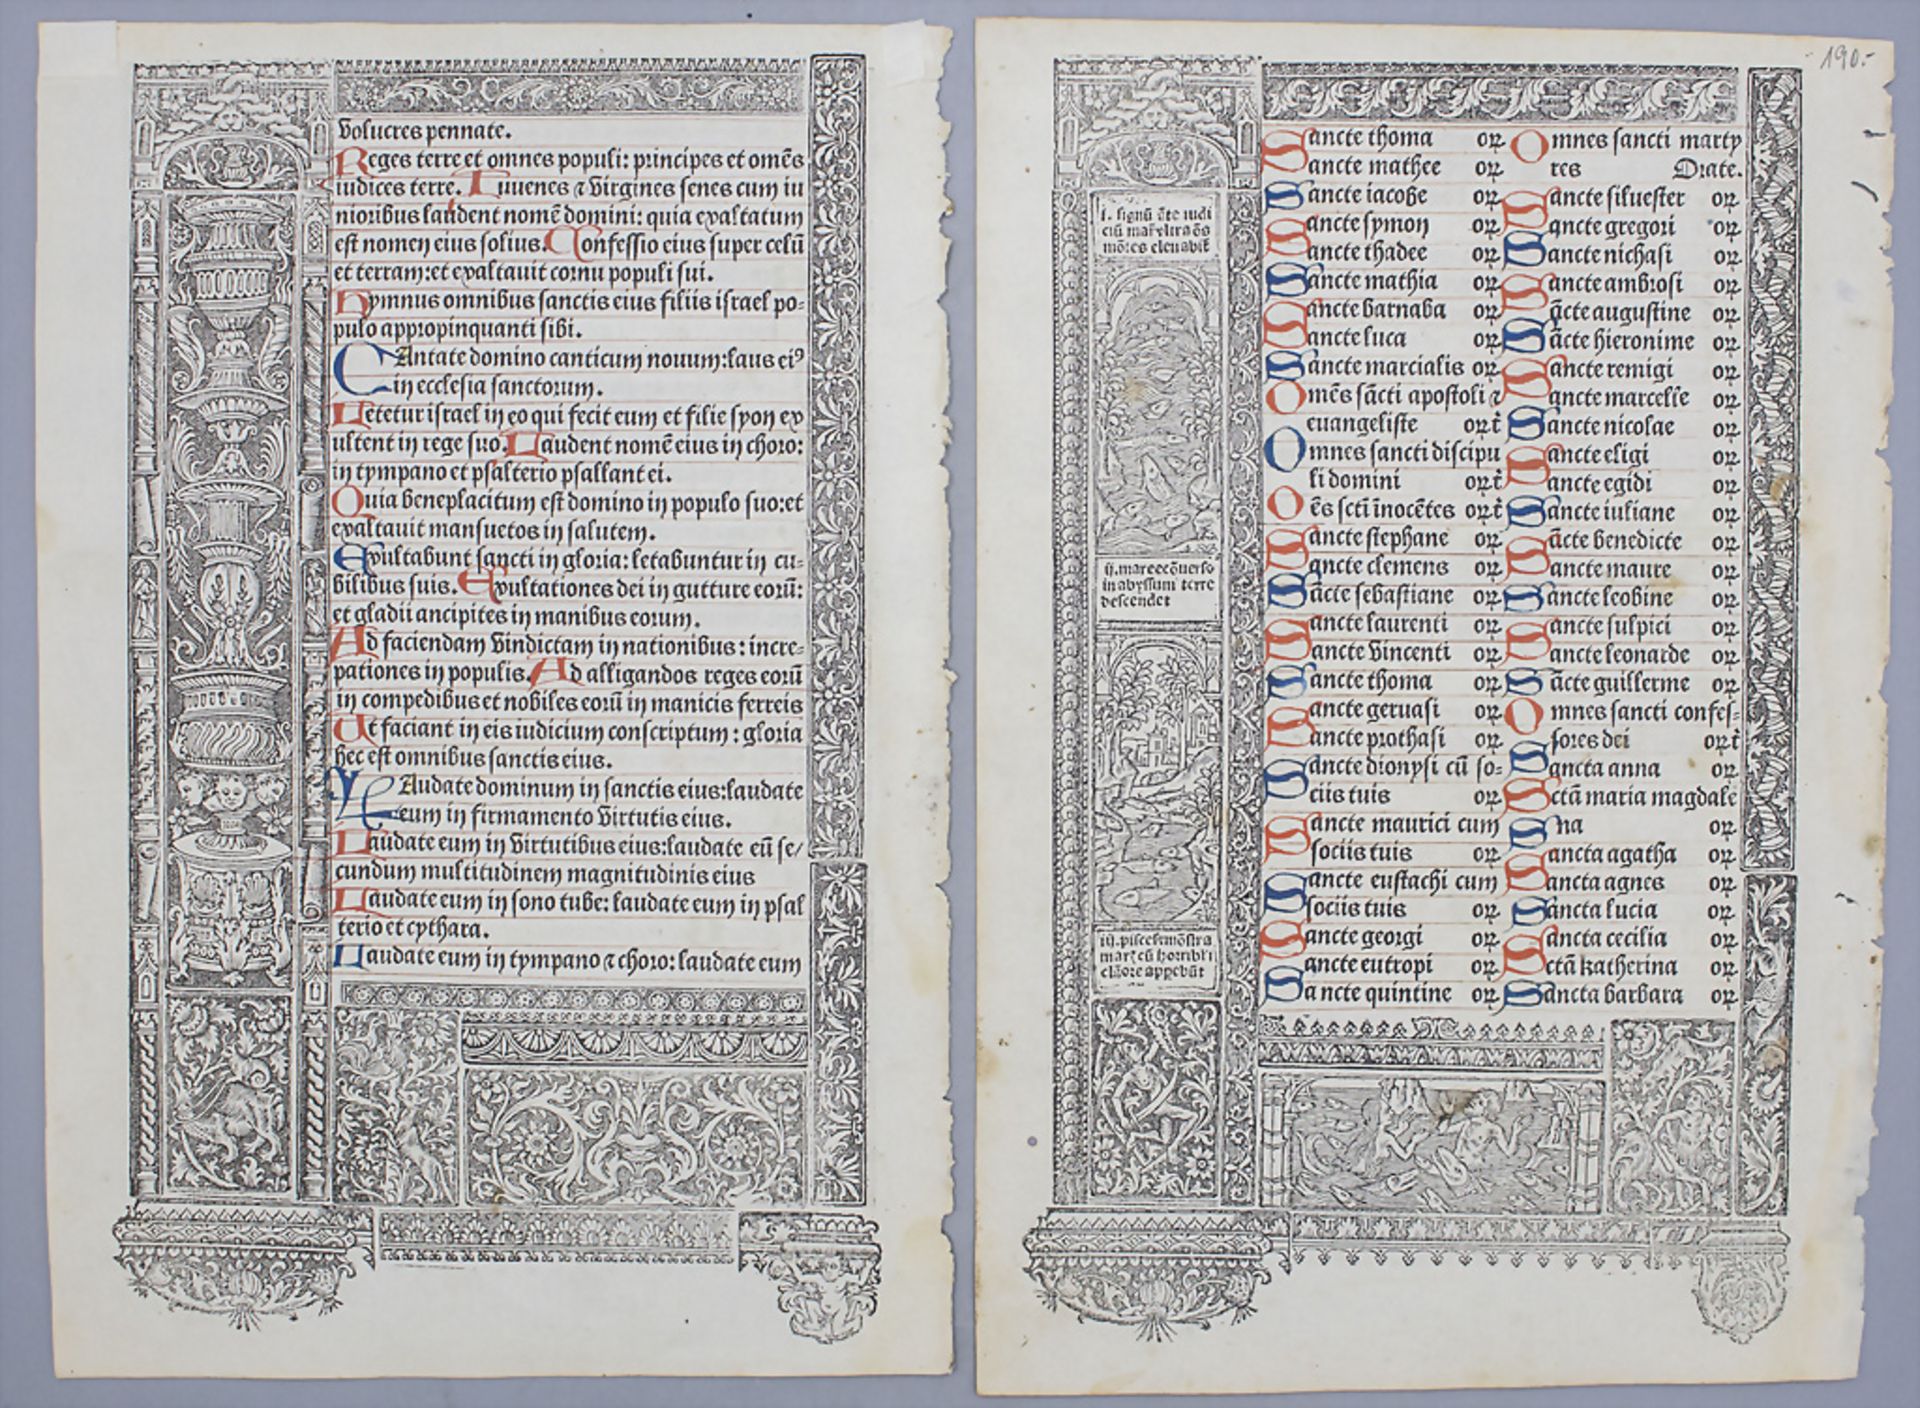 volucres pennate.
Reges terre et omnes populi: principes et omēs
iudices terre. Iuvenes ⁊ virgines senes cum iu
nioribus laudent nomē domini: quia exaltatum
est nomen eius solius. Confessio eius super celū
et terram: et exaltavit cornu populi sui.
Hymnus omnibus sanctis eius filiis israel po-
pulo appropinquanti sibi.
CAntate domino canticum novum: laus eiꝰ
in ecclesia sanctorum.
Letetur israel in eo qui fecit eum et filie syon ex
ultent in rege suo. Laudent nomē eius in choro:
in tympano et psalterio psallant ei.
Quia beneplacitum est domino in populo suo: et
exaltavit mansuetos in salutem.
Exultabunt sancti in gloria: letabuntur in cu-
bilibus suis. Exultationes dei in gutture eorū:
et gladii ancipites in manibus eorum.
Ad faciendam vindictam in nationibus: incre-
pationes in populis. Ad alligandos reges eorū
in compedibus et nobiles eorū in manicis ferreis
Ut faciant in eis iudicium conscriptum: gloria
hec est omnibus sanctis eius.
LAudate dominum in sanctis eius: laudate
eum in firmamento virtutis eius.
Laudate eum in virtutibus eius: laudate eū se/
cundum multitudinem magnitudinis eius
Laudate eum in sono tube: laudate eum in psal
terio et cythara.
Laudate eum in tympano ⁊ choro: laudate eum
-190.-
i. signū āte iudi
ciū mar̄ ultra ōs
mōtes elevabit̄
ij. mare ecōverso
in abyssum terre
descendet
iij. pisces ⁊ mōstra
mar cū horribli
clāore appebūt
Sancte thoma oꝝ
Sancte mathee oꝝ
Sancte iacobe oꝝ
Sancte symon oꝝ
Sancte thadee oꝝ
Sancte mathia oꝝ
Sancte barnaba oꝝ
Sancte luca oꝝ
Sancte marcialis oꝝ
Omēs sācti apostoli ⁊
euangeliste oꝝt̄
Omnes sancti discipu
li domini oꝝt̄
Oēs scti īnocētes oꝝt̄
Sancte stephane oꝝ
Sancte clemens oꝝ
Sācte sebastiane oꝝ
Sancte laurenti oꝝ
Sancte vincenti oꝝ
Sancte thoma oꝝ
Sancte gervasi oꝝ
Sancte prothasi oꝝ
Sancte dionysi cū so-
ciis tuis oꝝ
Sancte maurici cum
sociis tuis oꝝ
Sancte eustachi cum
sociis tuis oꝝ
Sancte georgi oꝝ
Sancte eutropi oꝝ
Sancte quintine oꝝ
Omnes sancti marty
res Orate.
Sancte silvester oꝝ
Sancte gregori oꝝ
Sancte nichasi oꝝ
Sancte ambrosi oꝝ
Sācte augustine oꝝ
Sācte hieronime oꝝ
Sancte remigi oꝝ
Sancte marcelle oꝝ
Sancte nicolae oꝝ
Sancte eligi oꝝ
Sancte egidi oꝝ
Sancte iuliane oꝝ
Sācte benedicte oꝝ
Sancte maure oꝝ
Sancte leobine oꝝ
Sancte sulpici oꝝ
Sancte leonarde oꝝ
Sācte guillerme oꝝ
Omnes sancti confes-
sores dei oꝝt̄
Sancta anna oꝝ
Sctā maria magdale
na oꝝ
Sancta agatha oꝝ
Sancta agnes oꝝ
Sancta lucia oꝝ
Sancta cecilia oꝝ
Sctā katherina oꝝ
Sancta barbara oꝝ